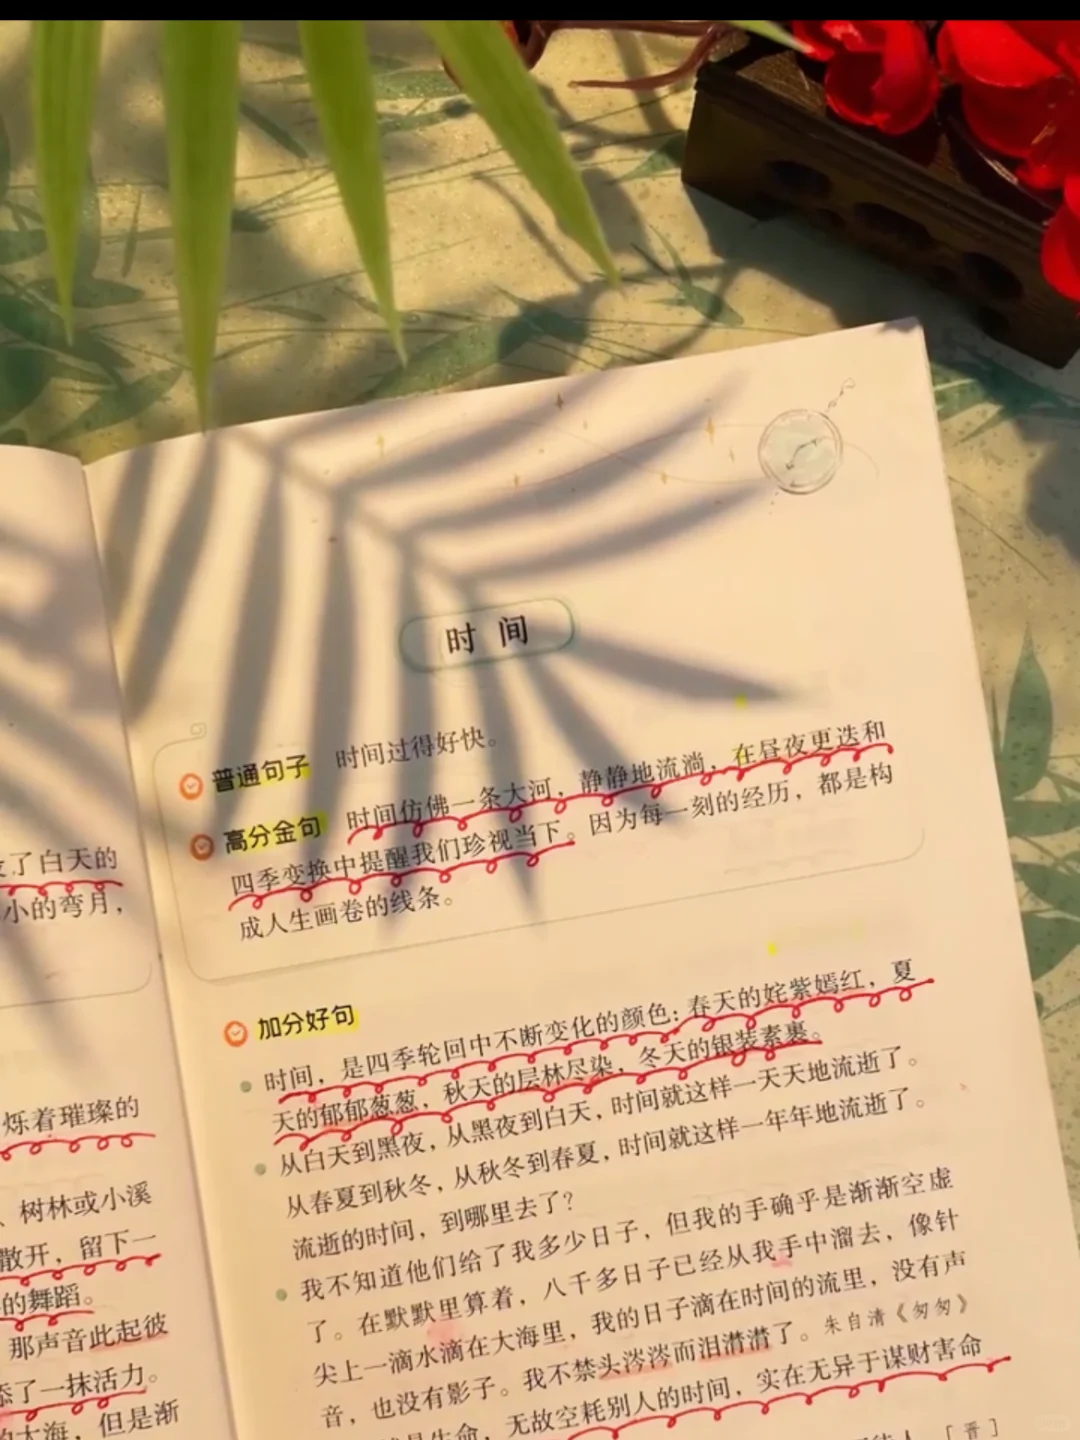 发了白天的
小的弯月，
烁着璀璨的
、树林或小溪
散开，留下一
的舞蹈。
那声音此起彼
添了一抹活力。
大海，但是渐
时间
普通句子 时间过得好快。
高分金句 时间仿佛一条大河，静静地流淌，在昼夜更迭和
四季变换中提醒我们珍视当下。因为每一刻的经历，都是构
成人生画卷的线条。
加分好句
时间，是四季轮回中不断变化的颜色：春天的姹紫嫣红，夏
天的郁郁葱葱，秋天的层林尽染，冬天的银装素裹。
从白天到黑夜，从黑夜到白天，时间就这样一天天地流逝了。
从春夏到秋冬，从秋冬到春夏，时间就这样一年年地流逝了。
流逝的时间，到哪里去了？
我不知道他们给了我多少日子，但我的手确乎是渐渐空虚
了。在默默里算着，八千多日子已经从我手中溜去，像针
尖上一滴水滴在大海里，我的日子滴在时间的流里，没有声
音，也没有影子。我不禁头涔涔而泪潸潸了。朱自清《匆匆》
是生命，无故空耗别人的时间，实在无异于谋财害命
［晋］